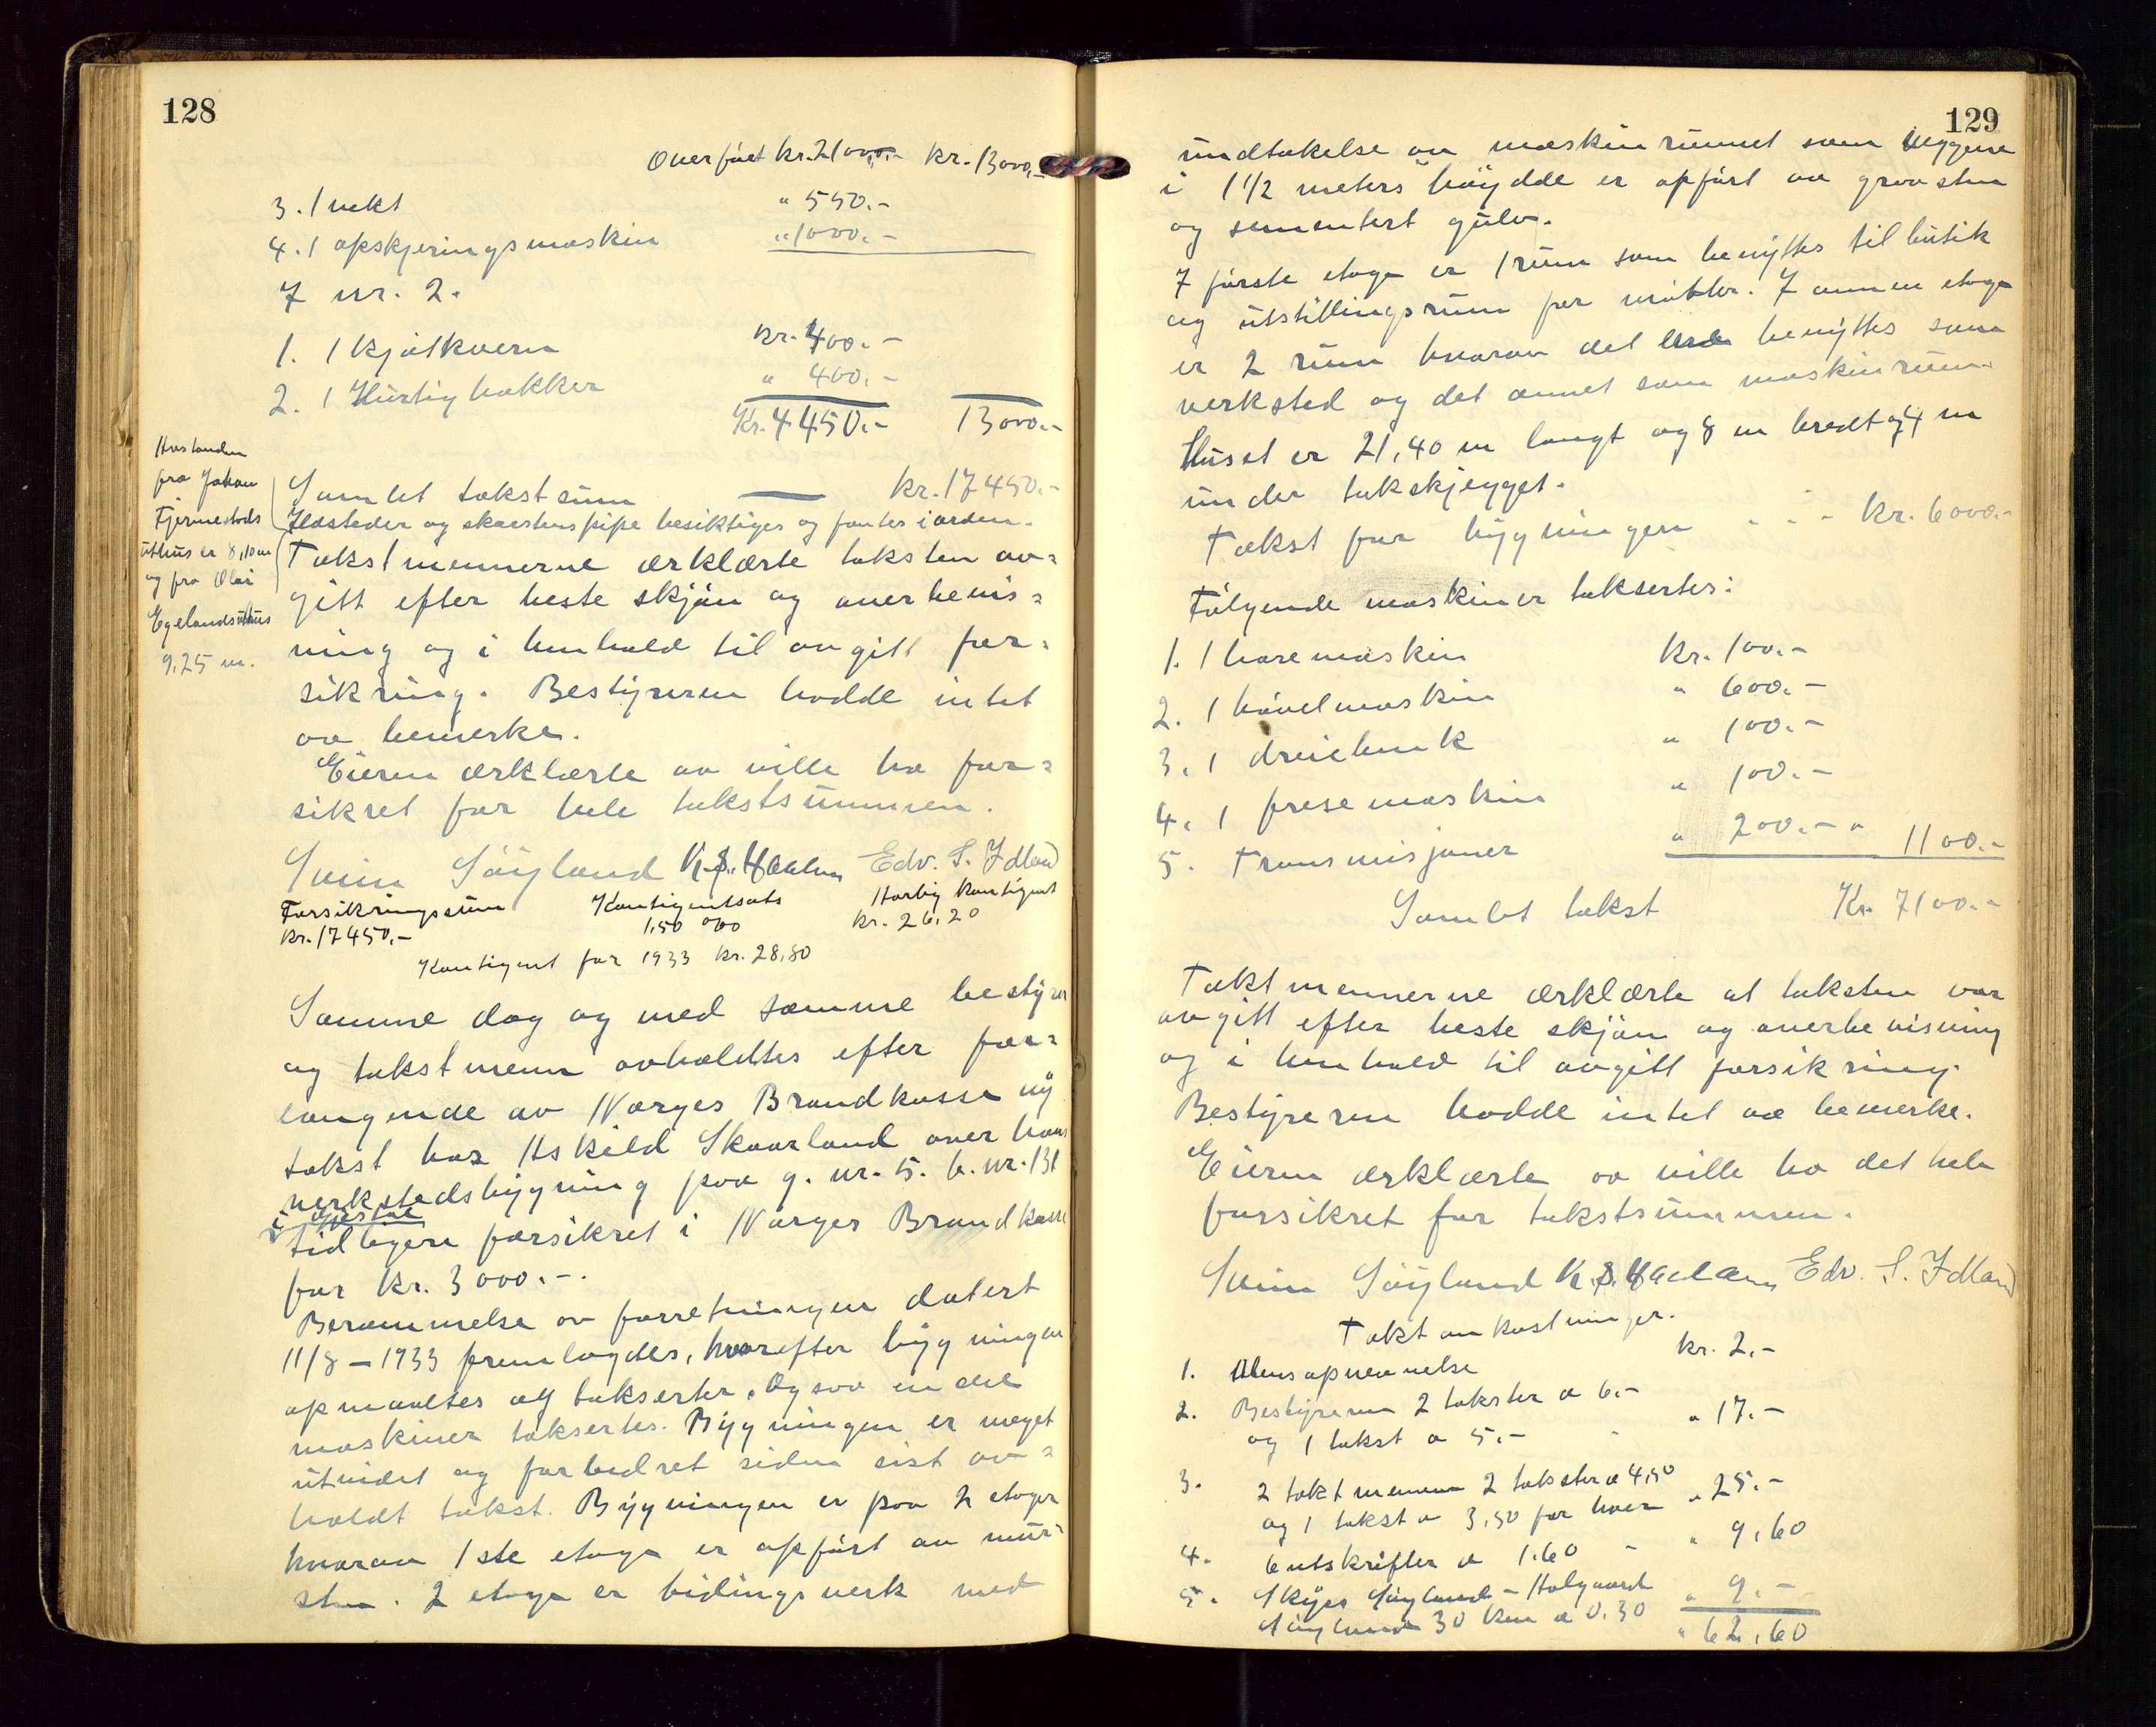 128
Overført kr. 2100,- kr. 13000,-
3. 1 vekt " 550.-
4. 1 opskjeringsmaskin " 1000.-
I nr. 2.
1. 1 kjøtkvern kr. 400.-
2. 1 Hurtighakker " 400.-
Kr. 4450.- 13000.-
Avstanden
fra Johan
Fjermestads
uthus er 8,10 m
og fra Olai
Egelands uthus
9.25 m.
Samlet takstsum kr. 17450.-
Ildsteder og skorstenspipe besiktiges og fantes i orden.
Takstmennerne ærklærte taksten av-
gitt efter beste skjøn og overbevis-
ning og i henhold til avgitt for-
sikring. Bestyreren hadde intet
aa bemerke.
Eieren ærklærte aa ville ha for-
sikret for hele takstsummen.
Svein Søyland Edv. S. Idland
Forsikringssum Kontigentsats Aarlig kontigent
kr. 17450.- 1,50 ‰ kr. 26,20
Kontigent for 1933 kr. 28,80
Samme dag og med samme bestyrer
og takstmenn avholdtes efter for-
langende av Norges Brandkasse ny
takst hos Askild Skaarland over hans
verkstedsbygning paa g. nr. 5. b. nr. 131
i Gjesdal
tidligere forsikret i Norges Brandkasse
for kr. 3000.-.
Berammelse av forretningen datert
11/8 - 1933 fremlagdes, hvorefter bygningen
opmaaltes og taksertes. Ogsaa en del
maskiner taksertes. Bygningen er meget
utvidet og forbedret siden sist av-
holdt takst. Bygningen er paa 2 etager
hvorav 1ste etage er opført av mur-
sten. 2 etage er bidingsverk med
129
undtakelse av maskinrummet som veggene
i 1 1/2 meters høydde er opført av graasten
og sementert gulv.
I første etage er 1 rum som benyttes til butik
og utstillingsrum for møbler. I annen etage
er 2 rum hvorav det ene benyttes som
verksted og det annet som maskinrum.
Huset er 21,40 m langt og 8 m bredt og 4 m
under takskjegget.
Takst for bygningen kr. 6000.-
Følgende maskiner taksertes:
1. 1 boremaskin kr. 100.-
2. 1 høvelmaskin " 600.-
3. 1 dreiebenk " 100.-
4. 1 fresemaskin " 100.-
5. Transmisjoner " 200.- " 1100.-
Samlet takst Kr. 7100.-
Takstmennerne ærklærte at taksten var
avgitt efter beste skjøn og overbevisning
og i henhold til avgitt forsikring.
Bestyreren hadde intet aa bemerke.
Eieren ærklærte aa ville ha det hele
forsikret for takstsummen.
Svein Søyland Edv. S. Idland
Takstomkostninger.
1. Mensopnevnelse kr. 2.-
2. Bestyreren 2 takster a 6.-
og 1 takst a 5.- " 17.-
3. 2 takstmenn 2 takster a 4,50
og 1 takst a 3,50 for hver " 25.-
4. 6 utskrifter a 1.60 " 9,60
5. Skyss Søyland - Aalgaard
Søyland 30 km a 0.30 " 9.-
" 62,60